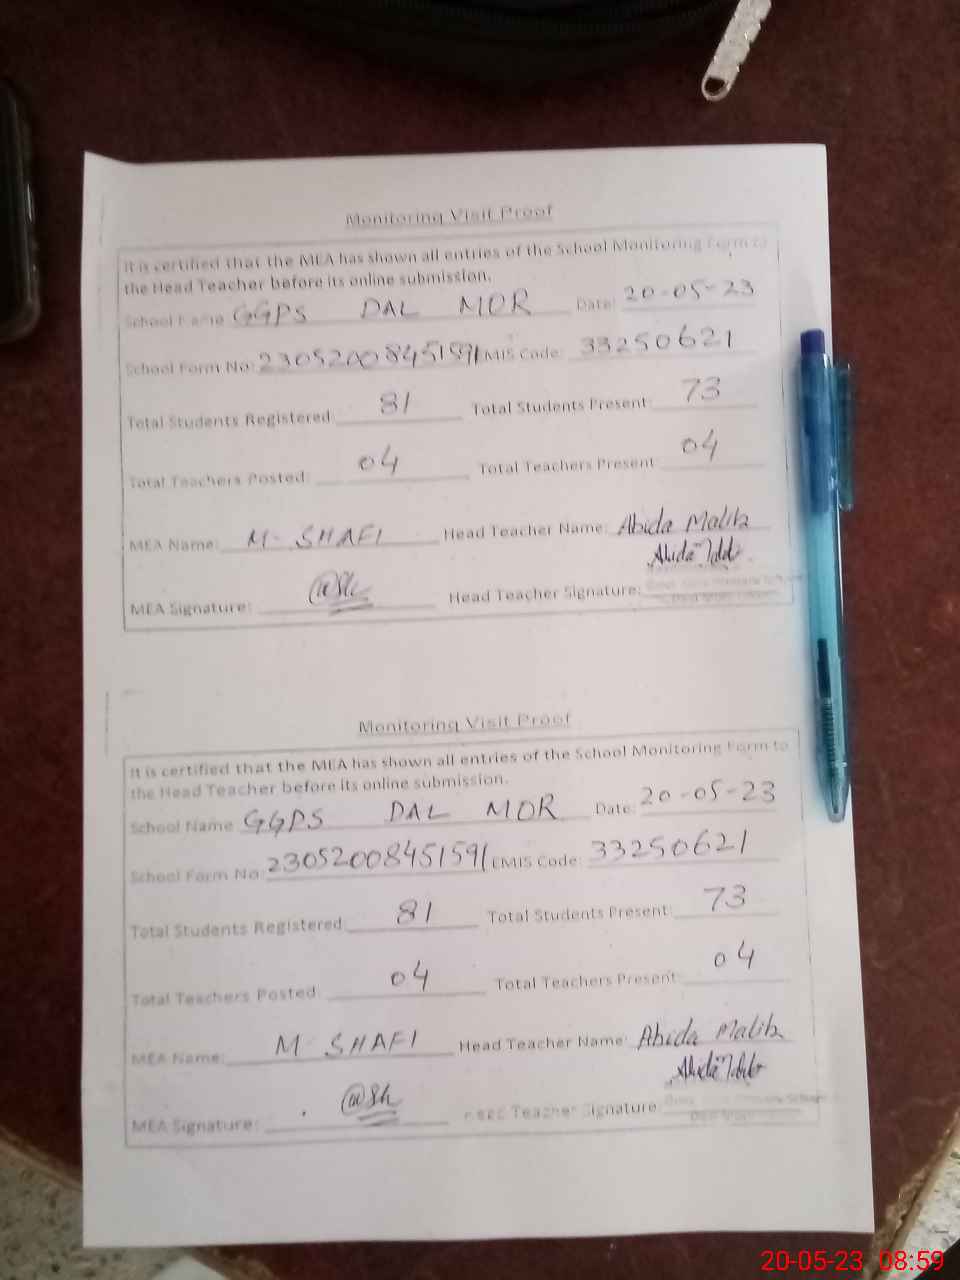 Monitoring Visit Proof
It is certified that the MEA has shown all entries of the School Monitoring Form to
the Head Teacher before its online submission.
School Name GGPS DAL MOR Date: 20-05-23
School Form No: 23052008451591 EMIS Code: 33250621
Total Students Registered 81 Total Students Present: 73
Total Teachers Posted: 04 Total Teachers Present: 04
MEA Name: M. SHAFI Head Teacher Name: Abida Malik
MEA Signature: Head Teacher Signature:
Monitoring Visit Proof
It is certified that the MEA has shown all entries of the School Monitoring Form to
the Head Teacher before its online submission.
School Name GGPS DAL MOR Date: 20-05-23
School Form No: 23052008451591 EMIS Code: 33250621
Total Students Registered: 81 Total Students Present: 73
Total Teachers Posted: 04 Total Teachers Present: 04
MEA Name: M SHAFI Head Teacher Name: Abida Malik
MEA Signature: Teacher Signature:
20-05-23 08:59